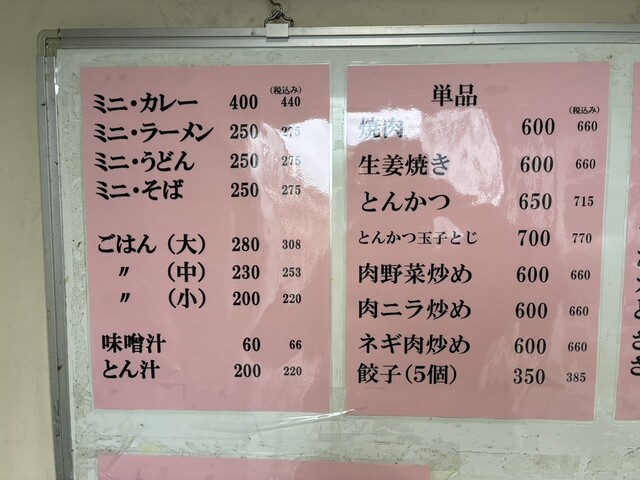 (税込み)
ミニ・カレー 400 440
ミニ・ラーメン 250 275
ミニ・うどん 250 275
ミニ・そば 250 275
ごはん(大) 280 308
〃 (中) 230 253
〃 (小) 200 220
味噌汁 60 66
とん汁 200 220
単品
(税込み)
焼肉 600 660
生姜焼き 600 660
とんかつ 650 715
とんかつ玉子とじ 700 770
肉野菜炒め 600 660
肉ニラ炒め 600 660
ネギ肉炒め 600 660
餃子(5個) 350 385